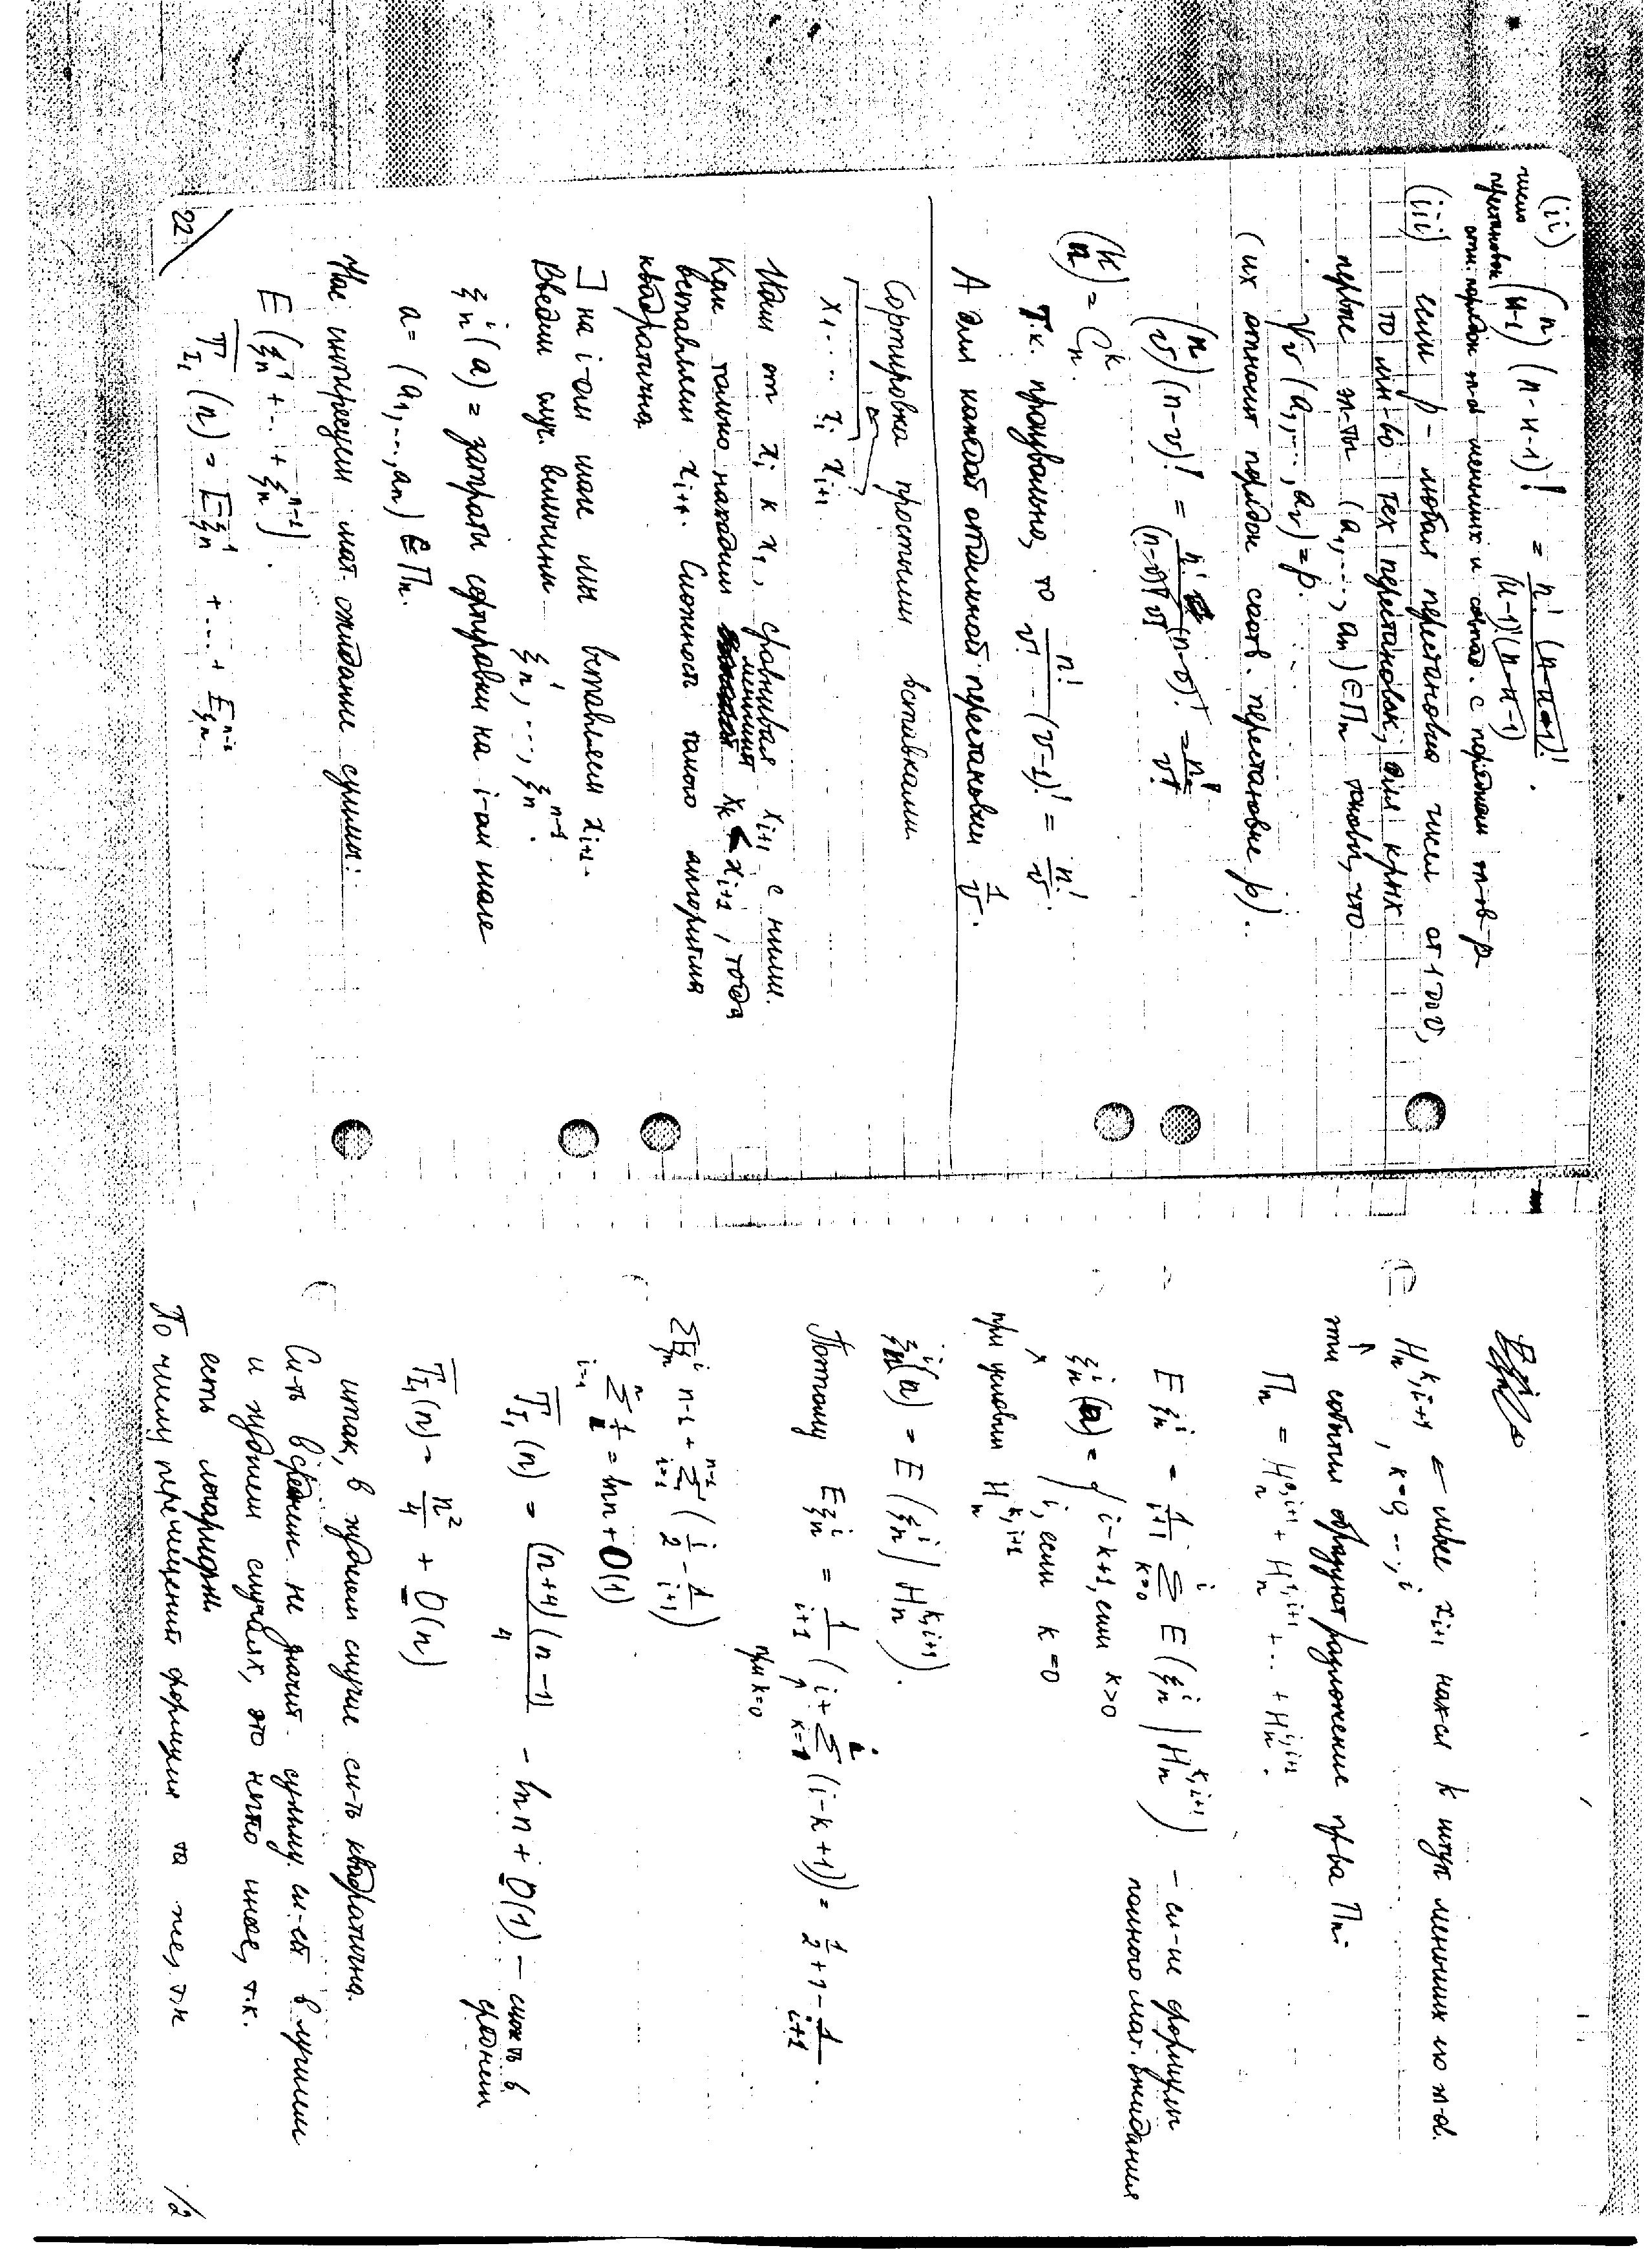 (ii) (n k-1) (n-k-1)! = n! (n-k-1)! / (k-1)! (n-k-1) .
число перестановок
отн. порядок эл-в меньших и совпад. с порядком эл-в p
(iii) если p - любая перестановка чисел от 1 до v,
то мн-во тех перестановок, для к-рых
первые эл-ты (a₁, ..., aₙ) ∈ Пₙ таковы, что
(a₁, ..., aᵥ) = p.
(их относит порядок соотв. перестановке p).
(n v) (n-v)! = n! (n-v)! / (n-v)! v! = n! / v!
(k n) = Cₙᵏ.
т.к. произвольно, то n!/v! (v-1)! = n!/v.
А для каждой отдельной перестановки 1/v.
Сортировка простыми вставками
x₁ . . . xᵢ xᵢ₊₁
Идем от xᵢ к x₁, сравнивая xᵢ₊₁ с ними.
Как только находим меньший xₖ < xᵢ₊₁, тогда
вставляем xᵢ₊₁. Сложность такого алгоритма
квадратична.
] на i-ом шаге мы вставляем xᵢ₊₁.
Введем случ. величины ξₙ¹, ..., ξₙⁿ⁻¹.
ξₙⁱ(a) = затраты сортировки на i-ом шаге
a = (a₁, ..., aₙ) ∈ Пₙ.
Нас интересует мат. ожидание суммы:
E(ξₙ¹ + ... + ξₙⁿ⁻¹).
T̄_I₁(n) = Eξₙ¹ + ... + Eξₙⁿ⁻¹
22
Hₙᵏ'ⁱ⁺¹ ← левее xᵢ₊₁ нах-ся k штук меньших его эл-ов.
, k=0, ..., i
эти события образуют разложение пр-ва Пₙ:
Пₙ = Hₙ⁰'ⁱ⁺¹ + Hₙ¹'ⁱ⁺¹ + ... + Hₙⁱ'ⁱ⁺¹.
Eξₙⁱ = 1/(i+1) Σₖ₌₀ⁱ E(ξₙⁱ | Hₙᵏ'ⁱ⁺¹) - сл-ие формулы
полного мат. ожидания
ξₙⁱ(a) = { i-k+1, если k>0
i, если k=0
при условии Hₙᵏ'ⁱ⁺¹
ξₙⁱ(a) = E(ξₙⁱ | Hₙᵏ'ⁱ⁺¹).
Потому Eξₙⁱ = 1/(i+1) (i + Σₖ₌₁ⁱ (i-k+1)) = i/2 + 1 - 1/(i+1) .
при k=0
ΣEξₙⁱ n-1 + Σᵢ₌₁ⁿ⁻¹ (i/2 - 1/(i+1))
Σᵢ₌₁ⁿ 1/i = ln n + O(1)
T̄_I₁(n) = (n+4)(n-1)/4 - ln n + O(1) - слож-ть в
среднем
T̄_I₁(n) = n²/4 + O(n)
итак, в худшем случае сл-ть квадратична.
Сл-ть в среднем не значит сумму сл-ей в лучшем
и худшем случаях, это нечто иное, т.к.
есть логарифм
По числу перемещений формула та же, т.к
/2